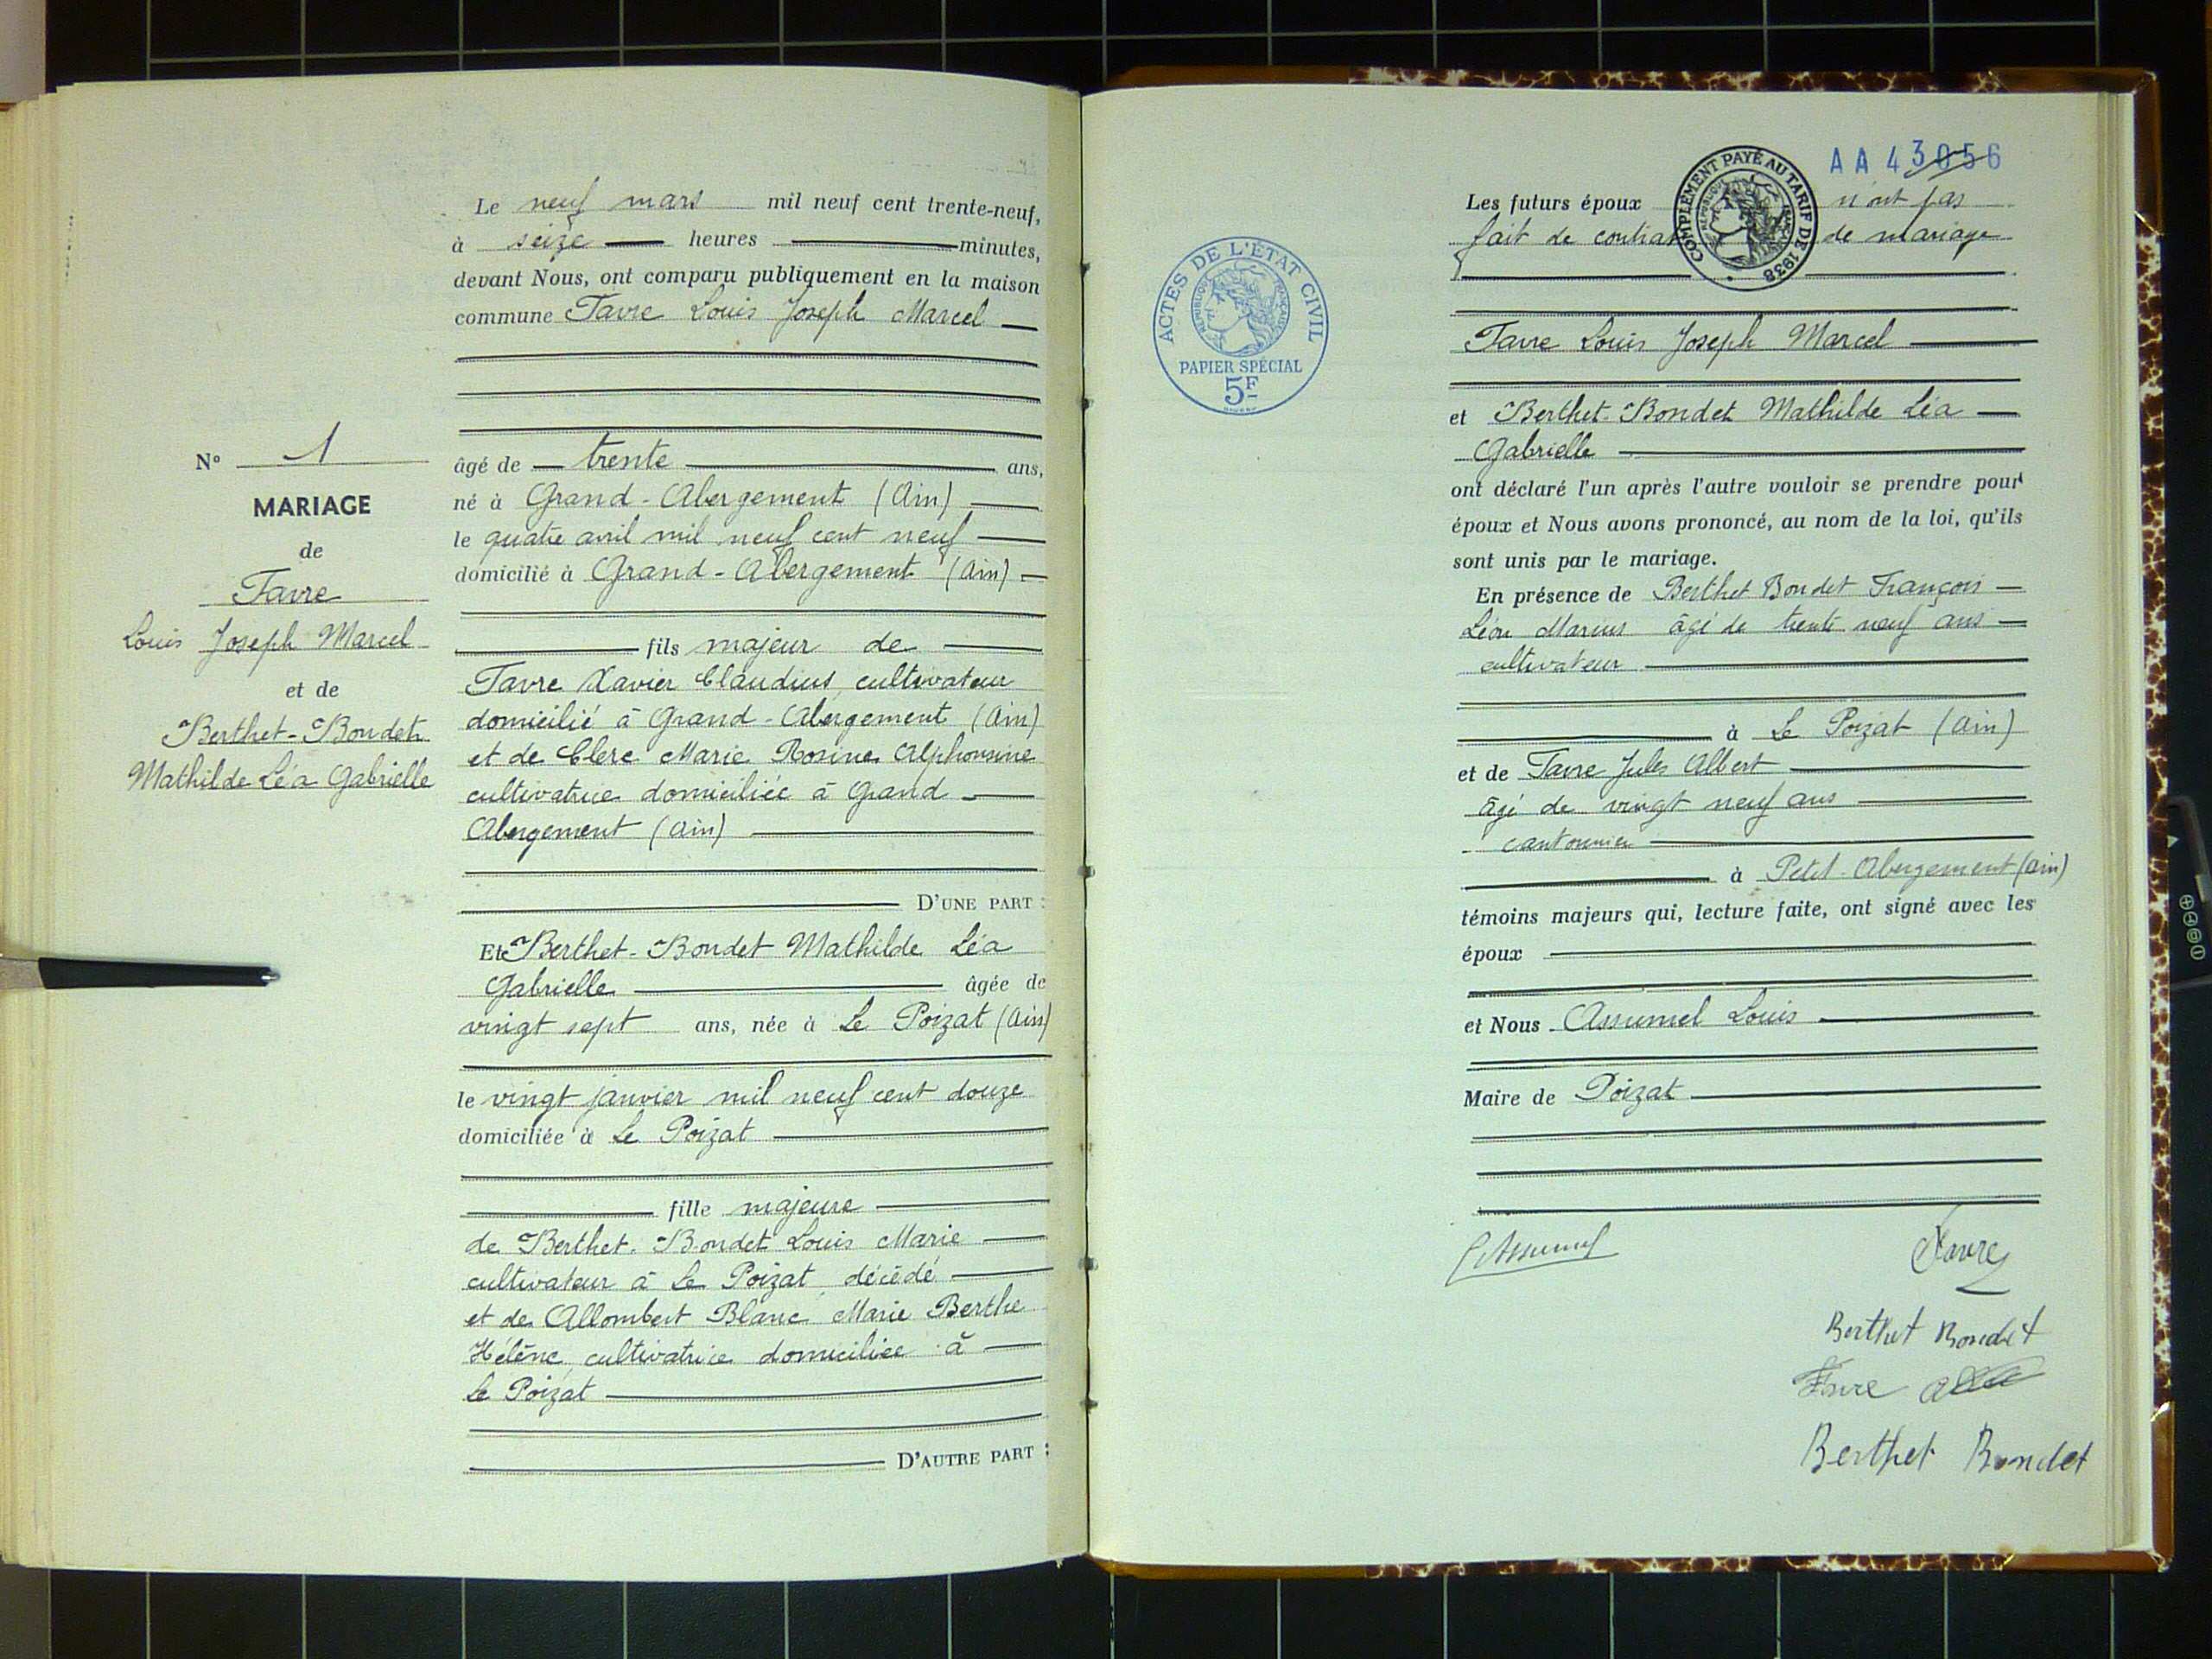 Le neuf mars mil neuf cent trente-neuf,
à seize heures minutes,
devant Nous, ont comparu publiquement en la maison
commune Favre Louis Joseph Marcel
âgé de trente ans,
né à Grand-Abergement (Ain)
le quatre avril mil neuf cent neuf
domicilié à Grand-Abergement (Ain)
fils majeur de
Favre Xavier Claudius, cultivateur
domicilié à Grand-Abergement (Ain)
et de Clerc Marie Rosine Alphonsine
cultivatrice domiciliée à Grand
Abergement (Ain)
D'UNE PART :
Et Berthet-Bondet Mathilde Léa
Gabrielle âgée de
vingt sept ans, née à Le Poizat (Ain)
le vingt janvier mil neuf cent douze
domiciliée à Le Poizat
fille majeure
de Berthet-Bondet Louis Marie
cultivateur à Le Poizat, décédé
et de Allombert Blanc Marie Berthe
Hélène, cultivatrice domiciliée à
Le Poizat
D'AUTRE PART :
N° 1
MARIAGE
de
Favre
Louis Joseph Marcel
et de
Berthet-Bondet
Mathilde Léa Gabrielle
ACTES DE L'ÉTAT CIVIL
RÉPUBLIQUE FRANÇAISE
PAPIER SPÉCIAL
5F
AA 43056
COMPLÉMENT PAYÉ AU TARIF DE 1938
Les futurs époux n'ont pas
fait de contrat de mariage
Favre Louis Joseph Marcel
et Berthet-Bondet Mathilde Léa
Gabrielle
ont déclaré l'un après l'autre vouloir se prendre pour
époux et Nous avons prononcé, au nom de la loi, qu'ils
sont unis par le mariage.
En présence de Berthet Bondet François
Léon Marius âgé de trente neuf ans
cultivateur
à Le Poizat (Ain)
et de Favre Jules Albert
âgé de vingt neuf ans
cantonnier
à Petit-Abergement (Ain)
témoins majeurs qui, lecture faite, ont signé avec les
époux
et Nous Assumel Louis
Maire de Poizat
Assumel
Favre
Berthet Bondet
Favre
Berthet Bondet